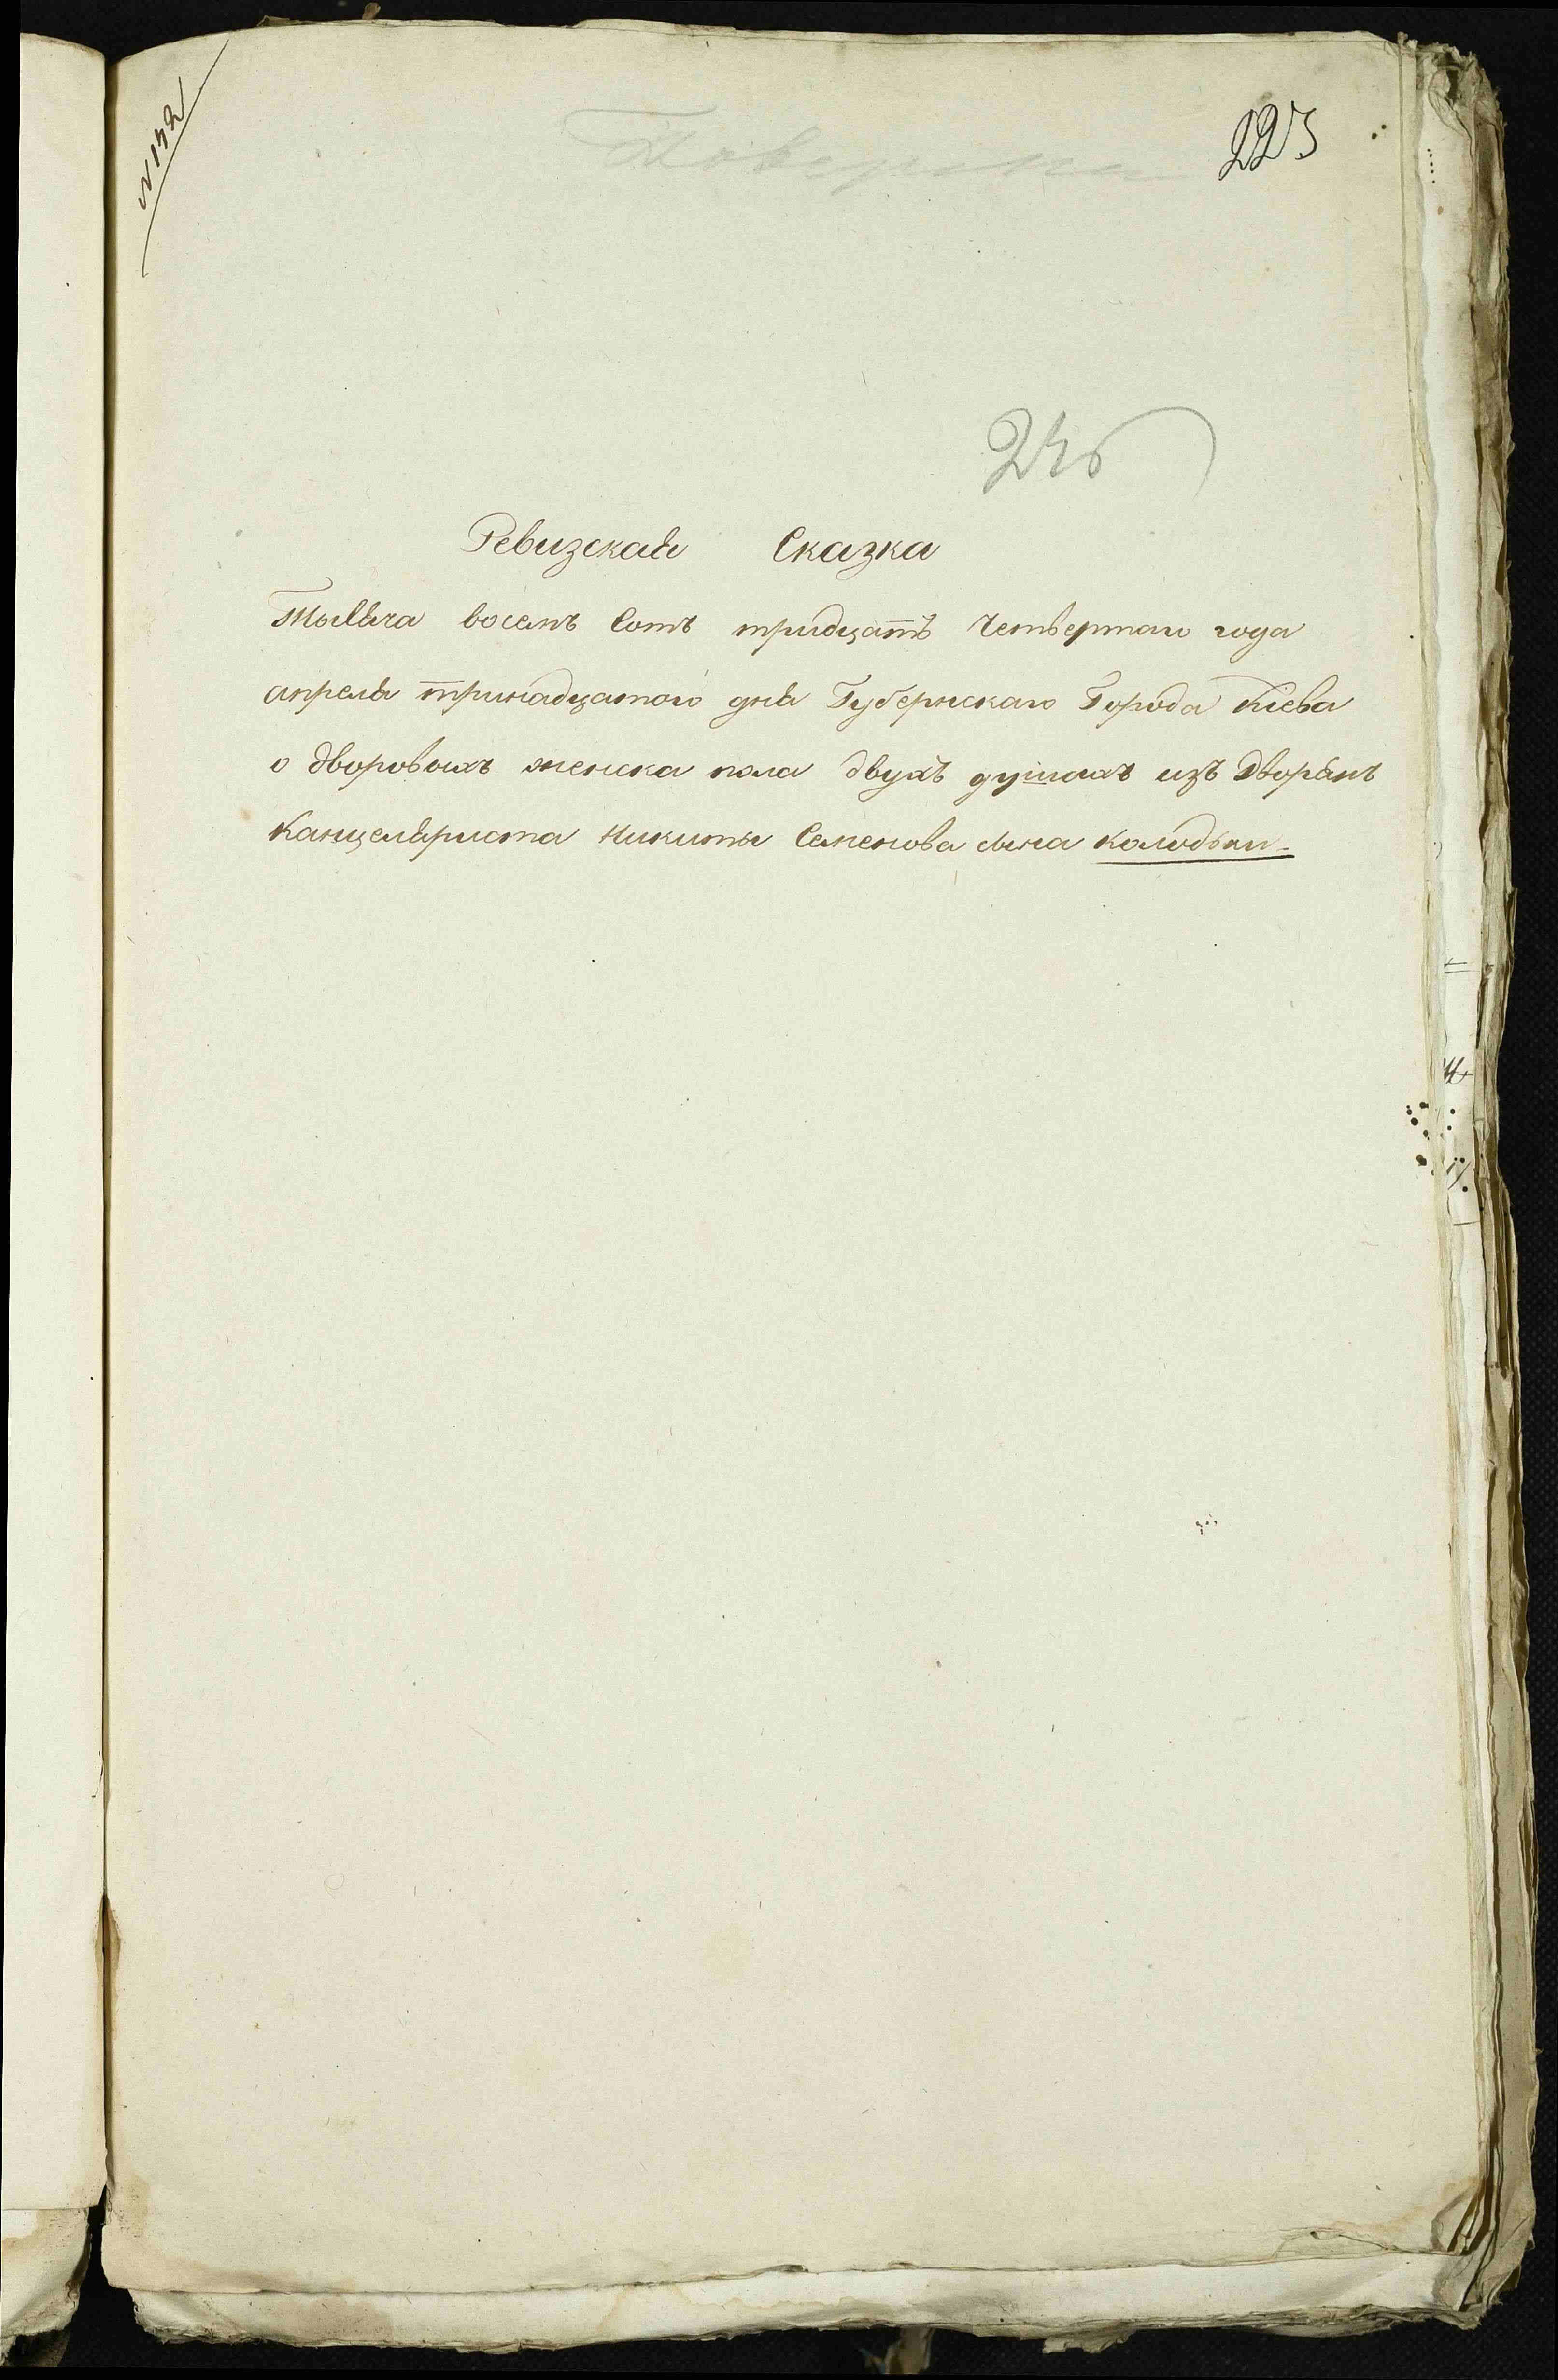 N 142
223
Ревизская Сказка
Тысяча восемь Сотъ тридцать Четвертаго года
апреля тринадцатого дня Губернскаго Города Кіева
о дворовыхъ женска пола двухъ душахъ изъ Дворянъ
Канцеляриста Никиты Семенова сына